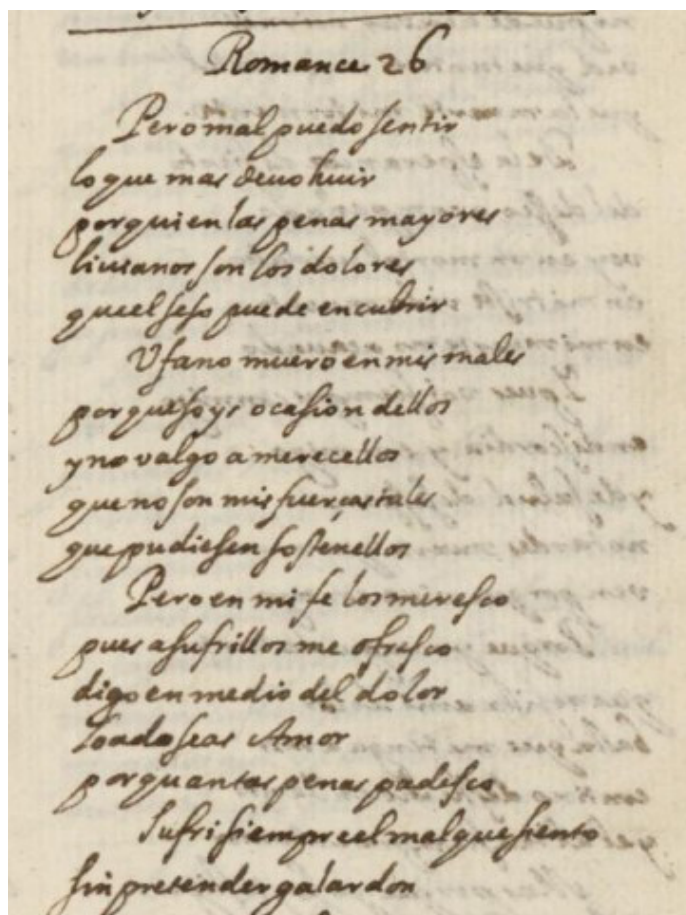 Romance 26
Pero mal puedo sentir
lo que mas devo huir
por quien las penas mayores
livianos son los dolores
que el seso puede encubrir
Ufano muero en mis males
porque soys ocasion dellos
y no valgo a merecellos
que no son mis fuerças tales
que pudiesen sostenellos
Pero en mi fe los meresco
pues a sufrillos me ofresco
digo en medio del dolor
loado seas Amor
por quantas penas padesco
Sufri siempre el mal que siento
sin pretender galardon